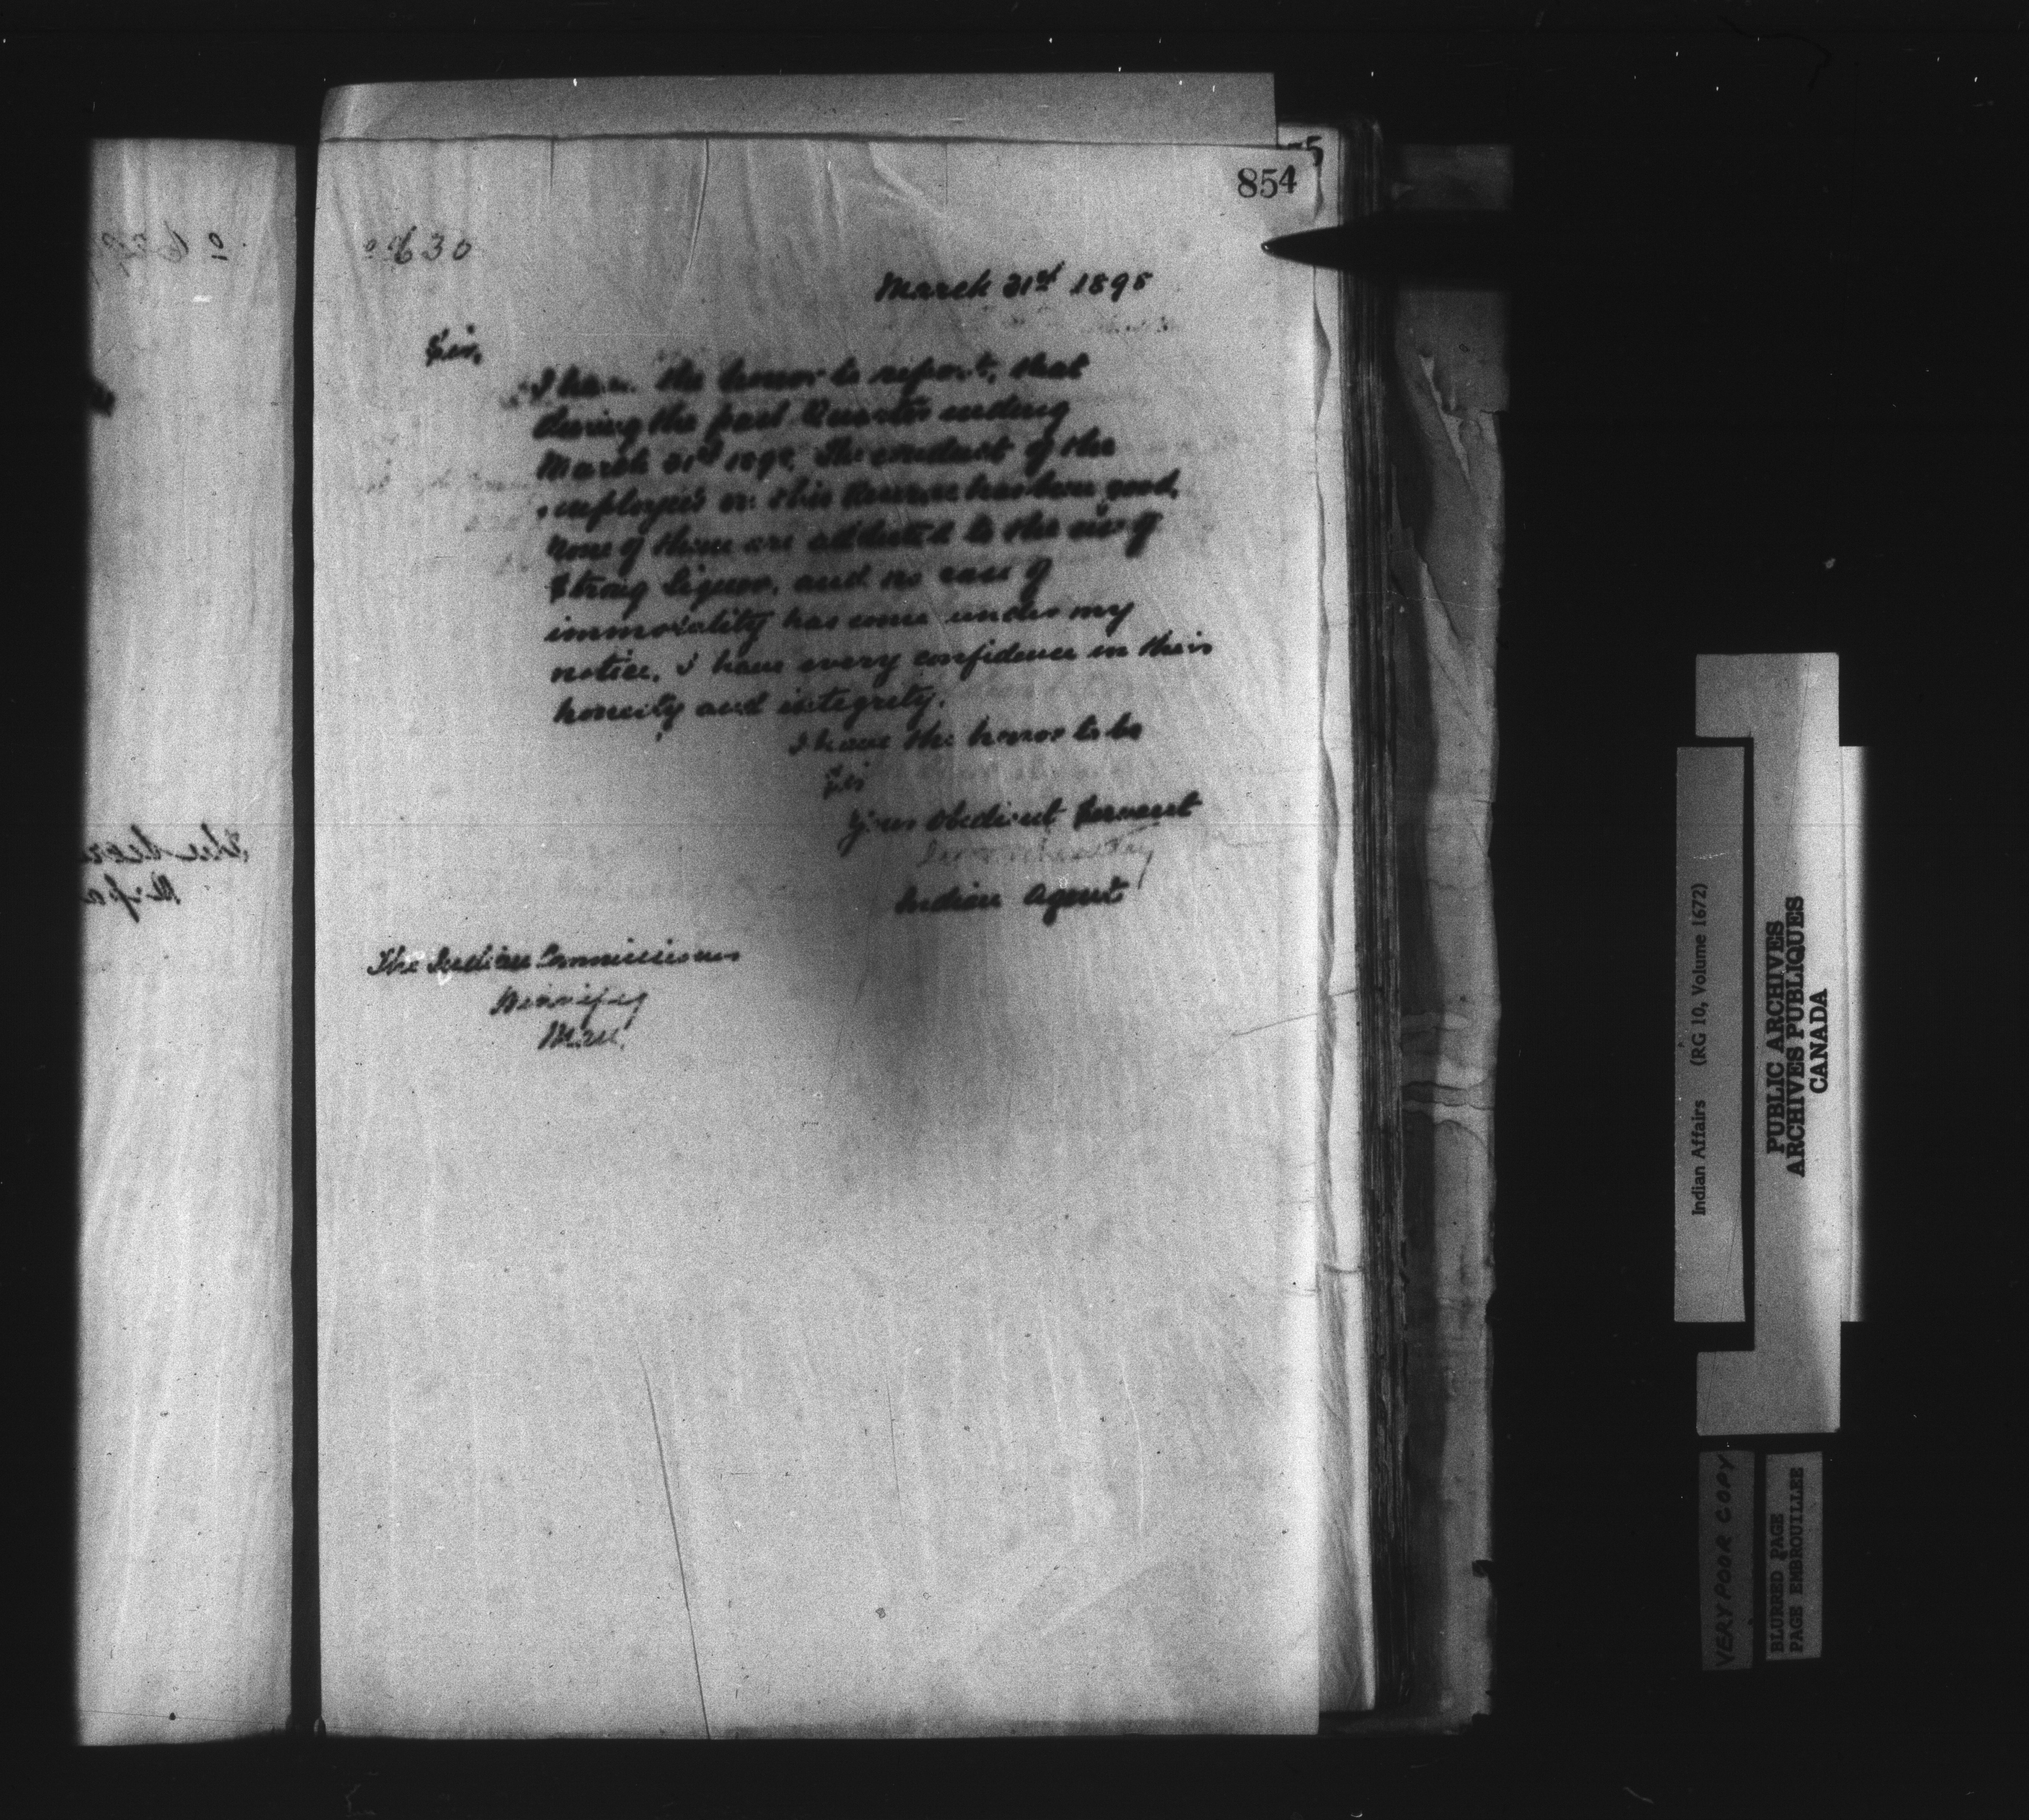 854
630
March 31st 1898
Sir,
I have the honor to report, that
during the past Quarter ending
March 31st 1898, The conduct of the
employees on this Reserve has been good,
none of them are addicted to the use of
Strong Liquor, and no case of
immorality has come under my
notice. I have every confidence in their
honesty and integrity.
I have the honor to be
Sir
Your Obedient Servant
Indian Agent
The Indian Commissioner
Winnipeg
Man.
Indian Affairs (RG 10, Volume 1672)
PUBLIC ARCHIVES
ARCHIVES PUBLIQUES
CANADA
VERY POOR COPY
BLURRED PAGE
PAGE EMBROUILLEE